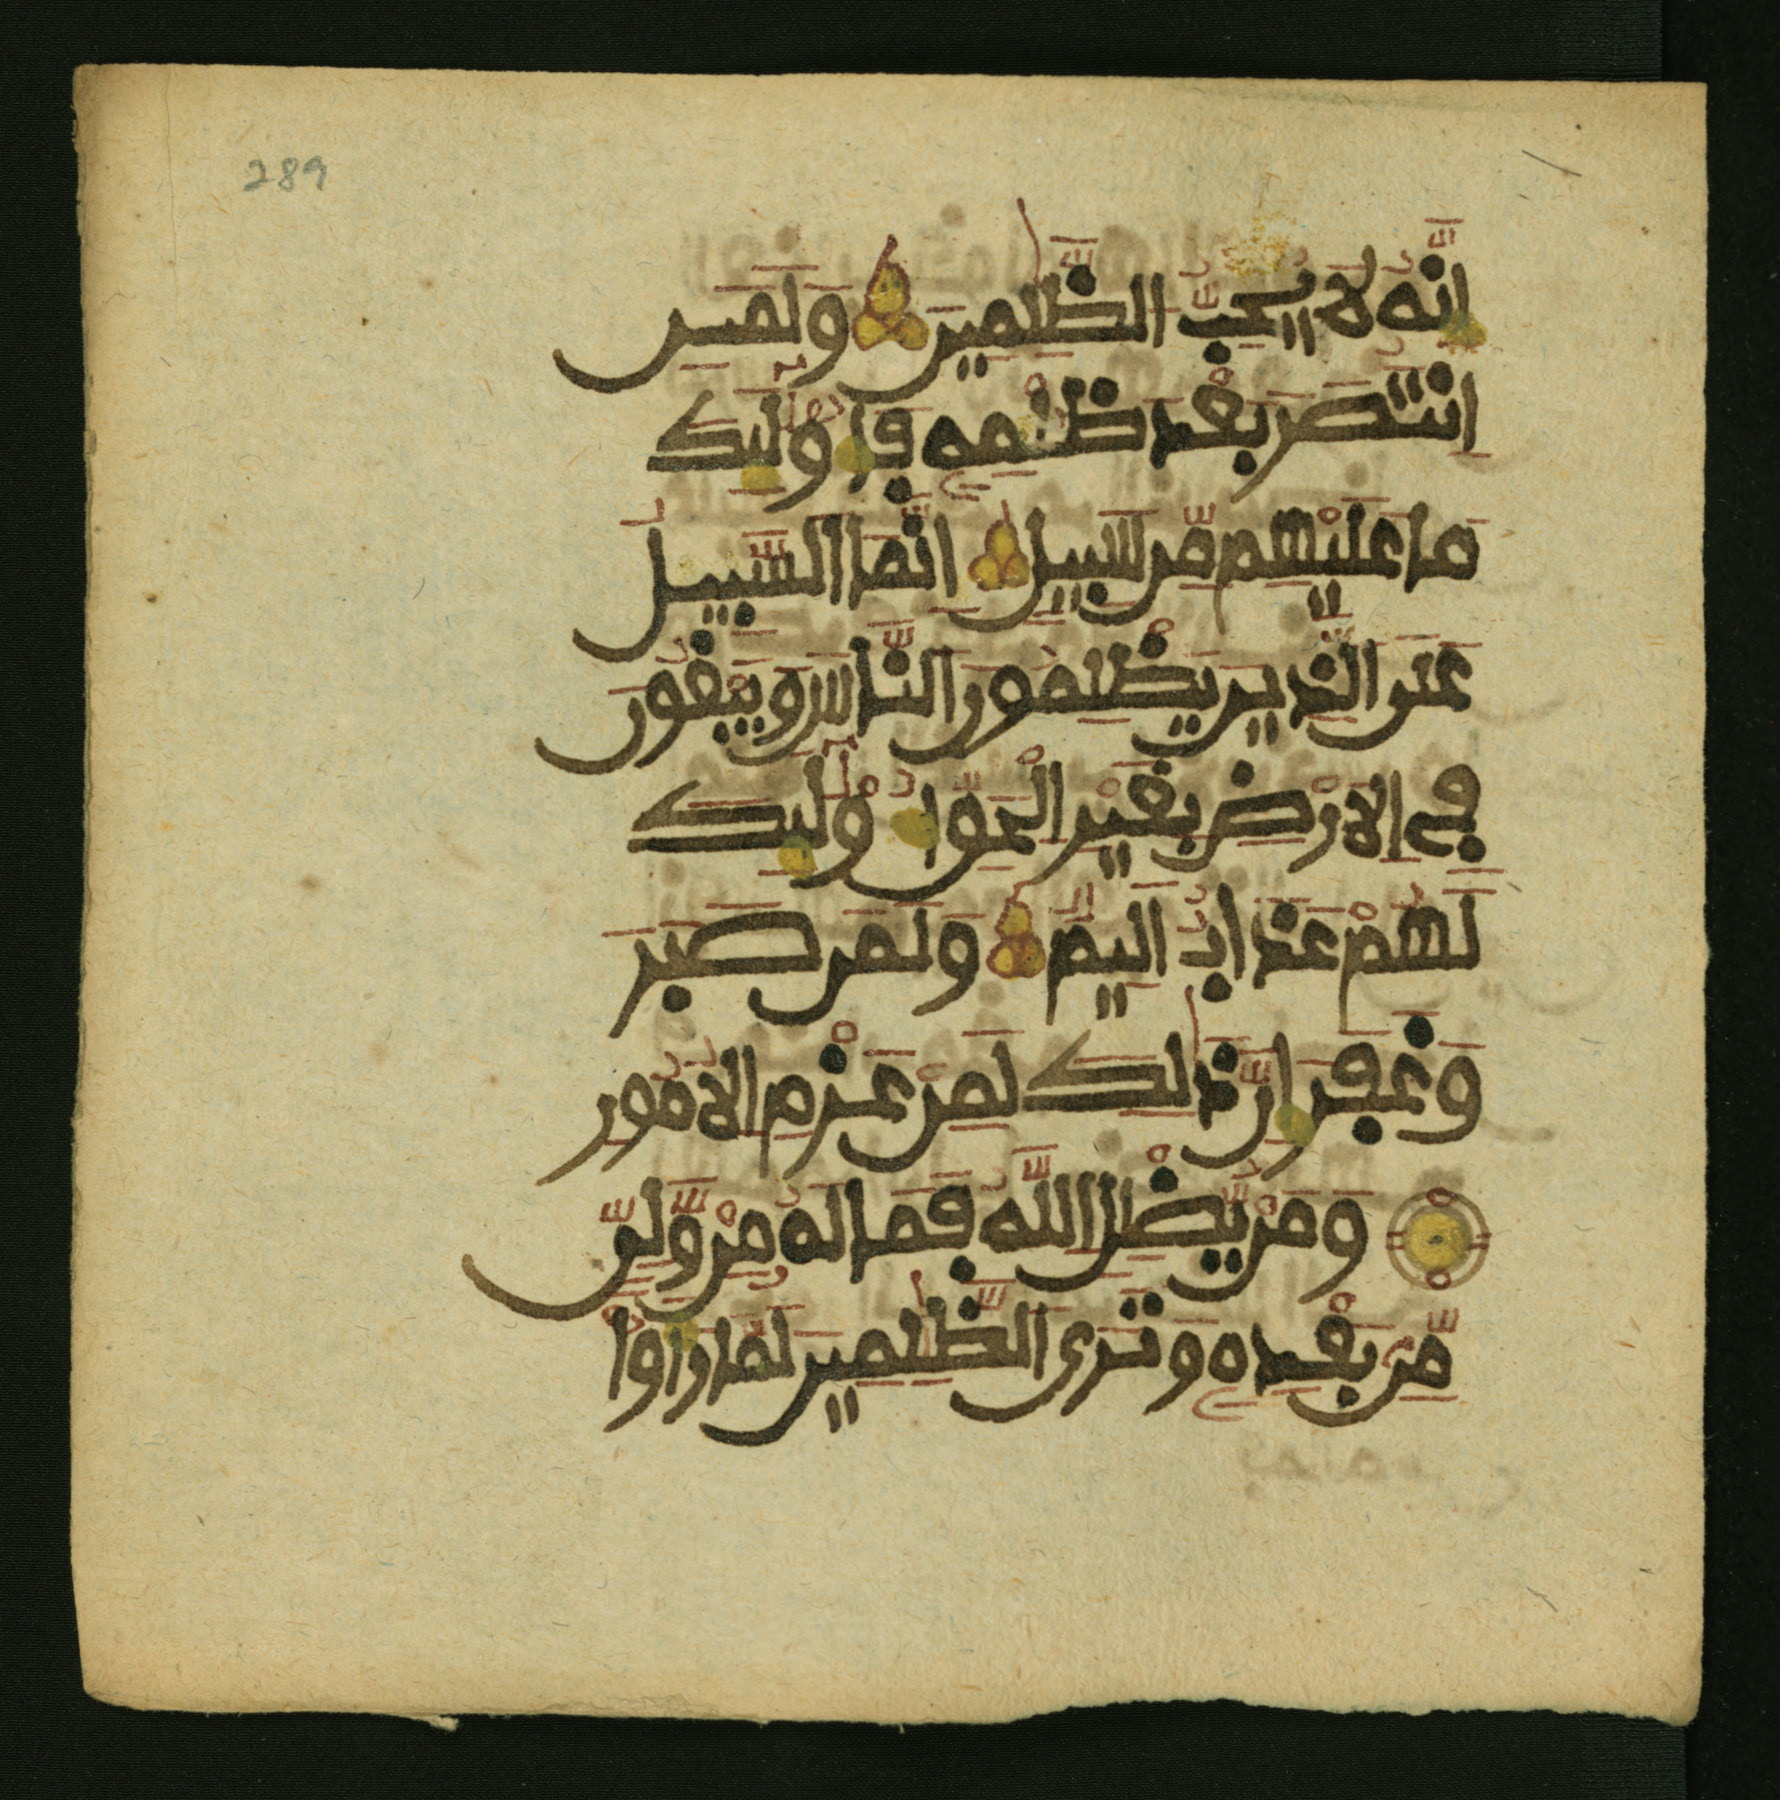 289
إِنَّهُ لَا يُحِبُّ الظَّٰلِمِينَ وَلَمَنِ
انتَصَرَ بَعْدَ ظُلْمِهِ فَأُوْلَٰٓئِكَ
مَا عَلَيْهِم مِّن سَبِيلٍ إِنَّمَا السَّبِيلُ
عَلَى الَّذِينَ يَظْلِمُونَ النَّاسَ وَيَبْغُونَ
فِي الْأَرْضِ بِغَيْرِ الْحَقِّ أُوْلَٰٓئِكَ
لَهُمْ عَذَابٌ أَلِيمٌ وَلَمَن صَبَرَ
وَغَفَرَ إِنَّ ذَٰلِكَ لَمِنْ عَزْمِ الْأُمُورِ
وَمَنْ يُّضْلِلِ اللَّهُ فَمَا لَهُ مِنْ وَّلِيٍّ
مِّنْ بَعْدِهِ وَتَرَى الظَّٰلِمِينَ لَمَّا رَأَوُا